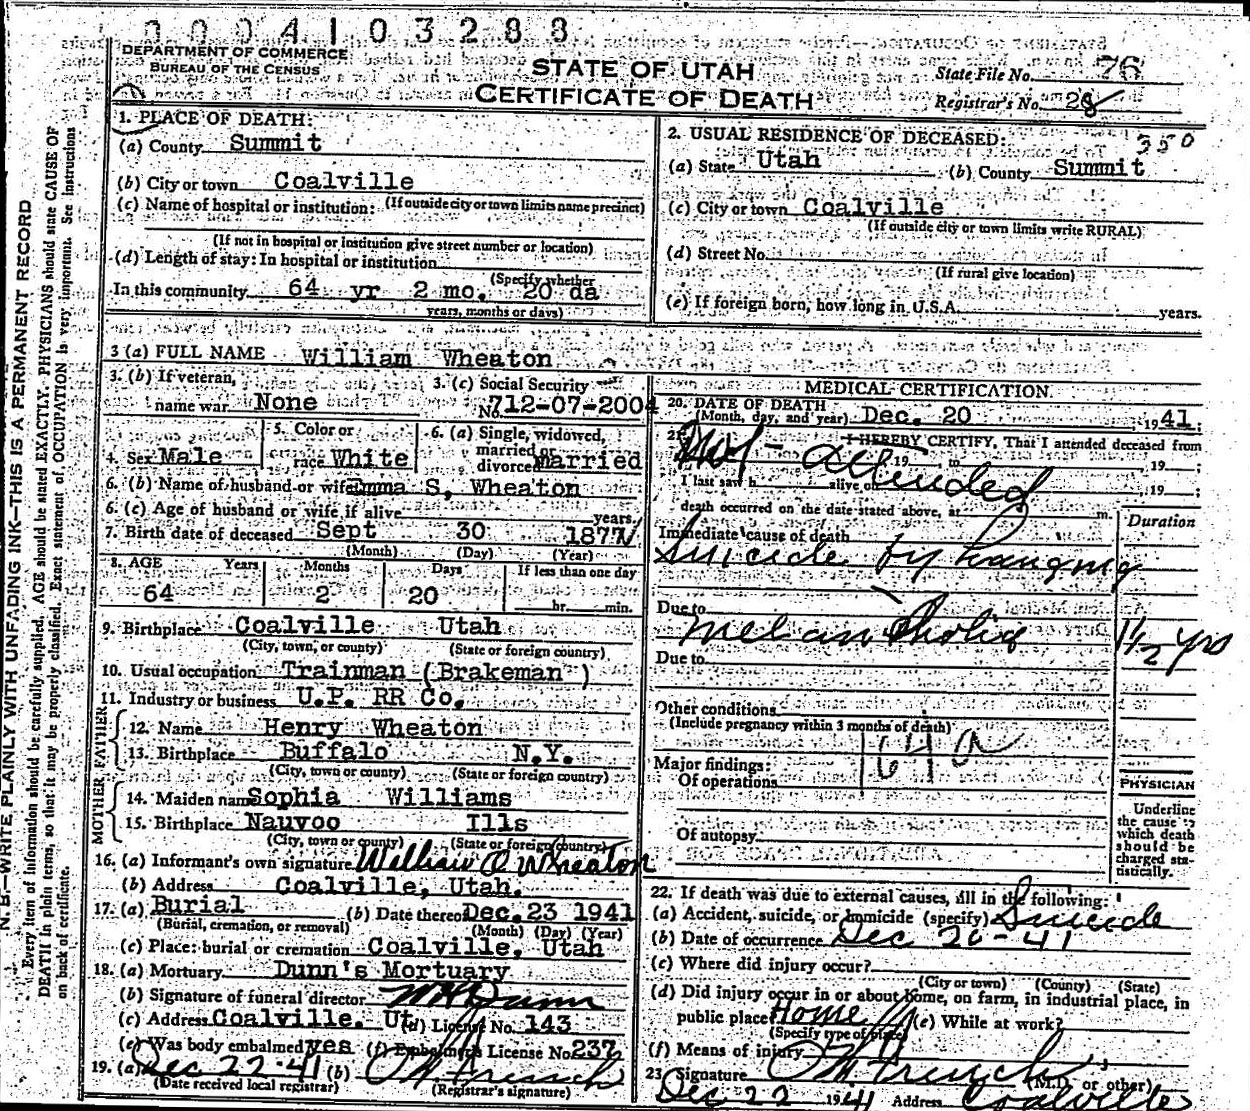 0004103288
DEPARTMENT OF COMMERCE
BUREAU OF THE CENSUS
STATE OF UTAH
CERTIFICATE OF DEATH
State File No. 76
Registrar's No. 28
350
N. B.—WRITE PLAINLY WITH UNFADING INK—THIS IS A PERMANENT RECORD
Every item of information should be carefully supplied. AGE should be stated EXACTLY. PHYSICIANS should state CAUSE OF
DEATH in plain terms, so that it may be properly classified. Exact statement of OCCUPATION is very important. See instructions
on back of certificate.
1. PLACE OF DEATH:
(a) County Summit
(b) City or town Coalville
(c) Name of hospital or institution: (If outside city or town limits name precinct)
(If not in hospital or institution give street number or location)
(d) Length of stay: In hospital or institution
(Specify whether
In this community 64 yr 2 mo. 20 da
years, months or days)
2. USUAL RESIDENCE OF DECEASED:
(a) State Utah (b) County Summit
(c) City or town Coalville
(If outside city or town limits write RURAL)
(d) Street No.
(If rural give location)
(e) If foreign born, how long in U.S.A. years.
3 (a) FULL NAME William Wheaton
3. (b) If veteran, name war None
3. (c) Social Security No. 712-07-2004
4. Sex Male
5. Color or race White
6. (a) Single, widowed, married or divorced married
6. (b) Name of husband or wife Emma S. Wheaton
6. (c) Age of husband or wife if alive years
7. Birth date of deceased Sept 30 1877
(Month) (Day) (Year)
8. AGE Years Months Days If less than one day
64 2 20 hr. min.
9. Birthplace Coalville Utah
(City, town, or county) (State or foreign country)
10. Usual occupation Trainman (Brakeman )
11. Industry or business U.P. RR Co.
FATHER
12. Name Henry Wheaton
13. Birthplace Buffalo N.Y.
(City, town or county) (State or foreign country)
MOTHER
14. Maiden name Sophia Williams
15. Birthplace Nauvoo Ills
(City, town or county) (State or foreign country)
16. (a) Informant's own signature William O Wheaton
(b) Address Coalville, Utah.
17. (a) Burial (b) Date thereof Dec. 23 1941
(Burial, cremation, or removal) (Month) (Day) (Year)
(c) Place: burial or cremation Coalville, Utah
18. (a) Mortuary Dunn's Mortuary
(b) Signature of funeral director Dunn
(c) Address Coalville. Ut (d) License No. 143
(e) Was body embalmed yes (f) Embalmer's License No. 237
19. (a) Dec 22-41 (b)
(Date received local registrar) (Registrar's signature)
MEDICAL CERTIFICATION
20. DATE OF DEATH
(Month, day, and year) Dec. 20 1941.
21. I HEREBY CERTIFY, That I attended deceased from
Not attended
19 , to , 19 ;
I last saw h alive on , 19 ;
death occurred on the date stated above, at m.
Duration
Immediate cause of death
Suicide by hanging
Due to
Melancholia 1 1/2 yrs
Due to
Other conditions
(Include pregnancy within 3 months of death)
164a
Major findings:
Of operations
Of autopsy
PHYSICIAN
Underline
the cause to
which death
should be
charged sta-
tistically.
22. If death was due to external causes, fill in the following:
(a) Accident, suicide, or homicide (specify) Suicide
(b) Date of occurrence Dec 20-41
(c) Where did injury occur?
(City or town) (County) (State)
(d) Did injury occur in or about home, on farm, in industrial place, in
public place? Home (e) While at work?
(Specify type of place)
(f) Means of injury
23. Signature (M.D. or other)
Dec 22 1941 Address Coalville